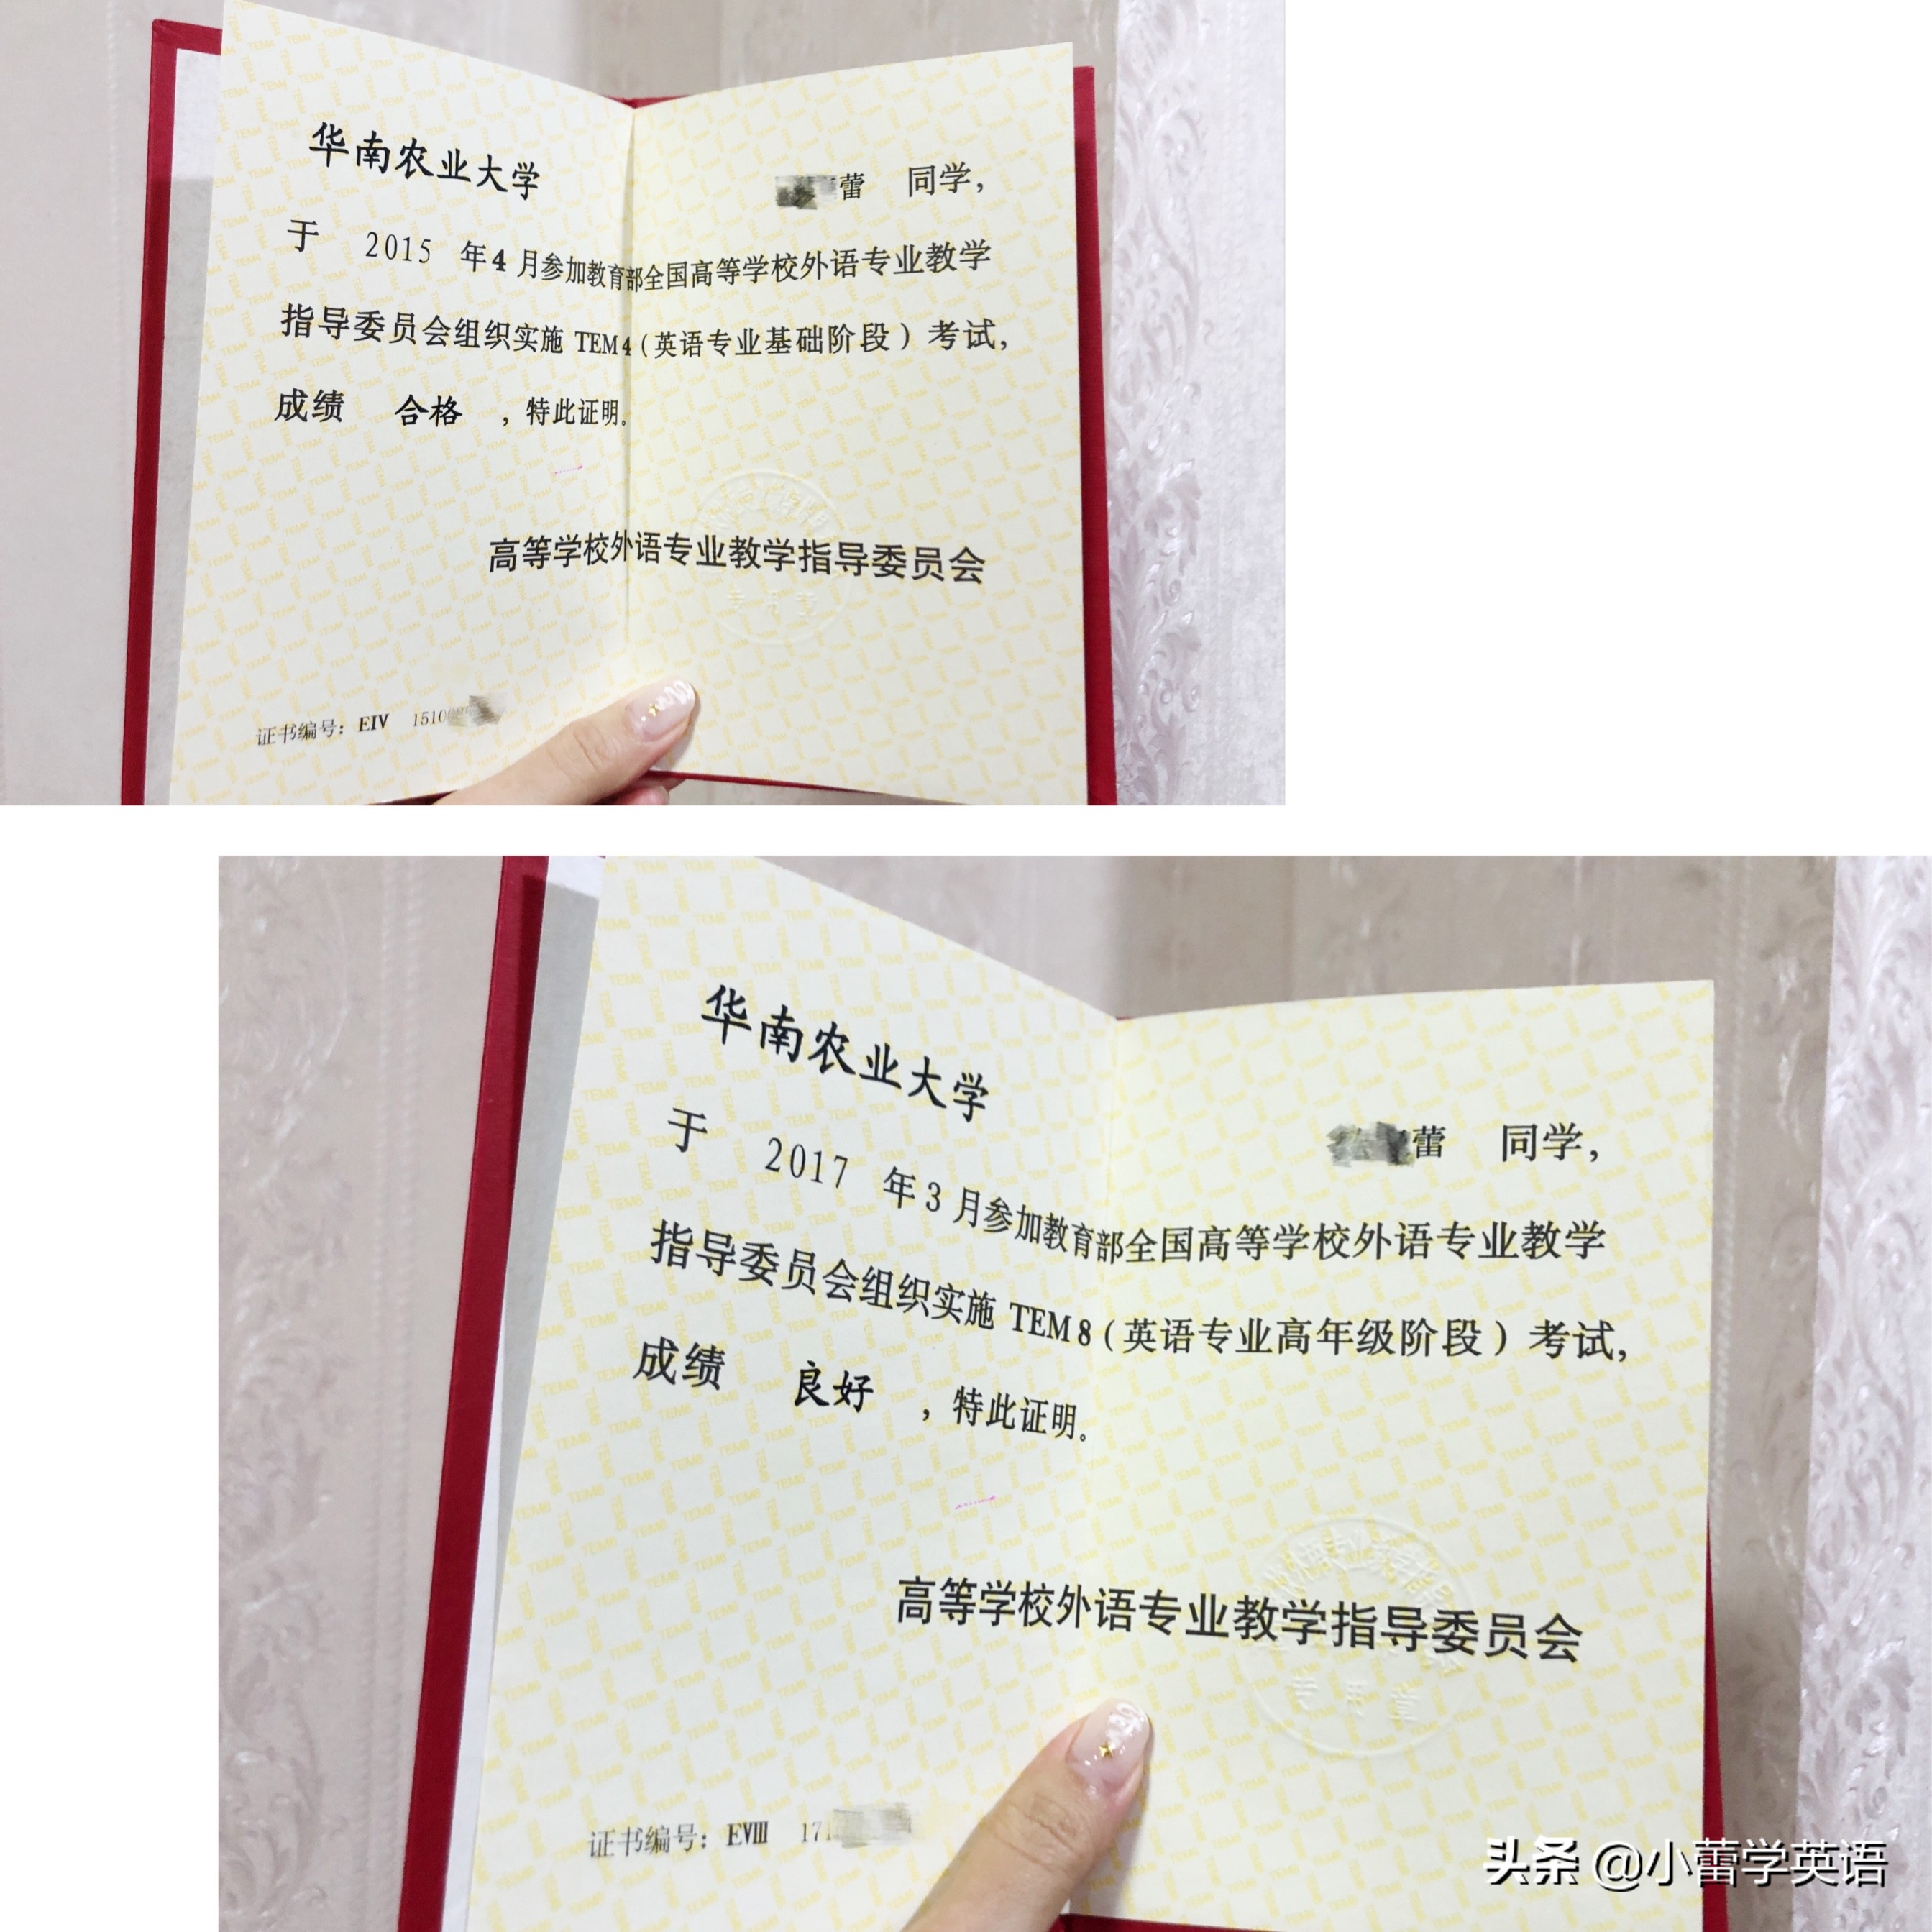 华南农业大学
蕾 同学，
于 2015 年4 月参加教育部全国高等学校外语专业教学
指导委员会组织实施 TEM4（英语专业基础阶段）考试，
成绩 合格 ，特此证明。
高等学校外语专业教学指导委员会
专用章
证书编号：EIV 1510
华南农业大学
蕾 同学，
于 2017 年 3 月参加教育部全国高等学校外语专业教学
指导委员会组织实施 TEM8（英语专业高年级阶段）考试，
成绩 良好 ，特此证明。
高等学校外语专业教学指导委员会
专用章
证书编号：EVIII 171
头条 @小蕾学英语